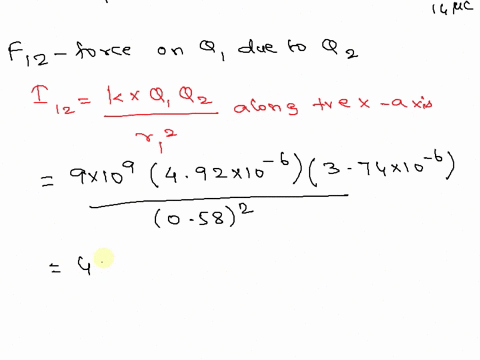 14 μC
F12 - force on Q1 due to Q2
F12 = k × Q1 Q2 / r1² along +ve x-axis
= 9×10⁹ (4.92×10⁻⁶)(3.74×10⁻⁶)
(0.58)²
= 4.